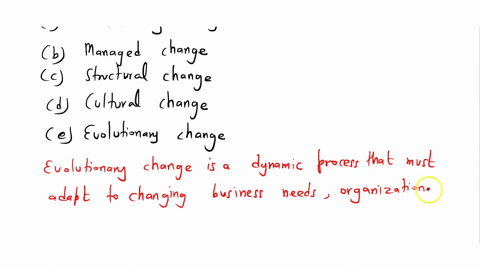 (b) Managed change
(c) Structural change
(d) Cultural change
(e) Evolutionary change
Evolutionary change is a dynamic process that must
adapt to changing business needs, organization